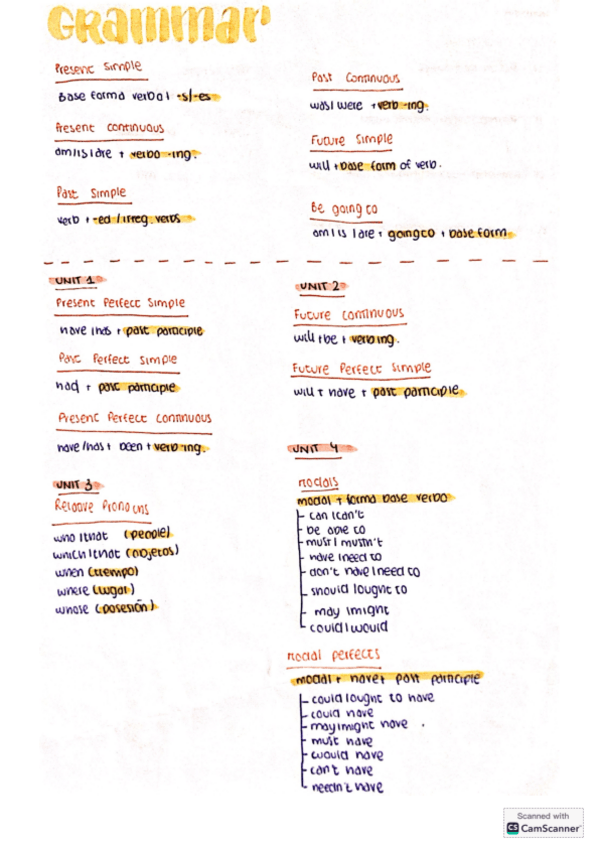 Grammar
Present Simple
Base forma verbal -s/-es
Present continuous
am/is/are + verbo -ing.
Past Simple
verb + -ed / irreg. verbs
Past Continuous
was/were + verb -ing.
Future Simple
will + base form of verb.
Be going to
am/is/are + going to + base form
UNIT 1
Present Perfect Simple
have/has + past participle
Past Perfect Simple
had + past participle
Present Perfect Continuous
have/has + been + verb ing.
UNIT 2
Future Continuous
will + be + verb ing.
Future Perfect Simple
will + have + past participle
UNIT 3
Relative Pronouns
who/that (people)
which/that (objetos)
when (tiempo)
where (lugar)
whose (posesión)
UNIT 4
Modals
modal + forma base verbo
can/can't
be able to
must/mustn't
have/need to
don't have/need to
should/ought to
may/might
could/would
Modal perfects
modal + have + past participle
could/ought to have
could have
may/might have
must have
would have
can't have
needn't have
Scanned with
CS CamScanner